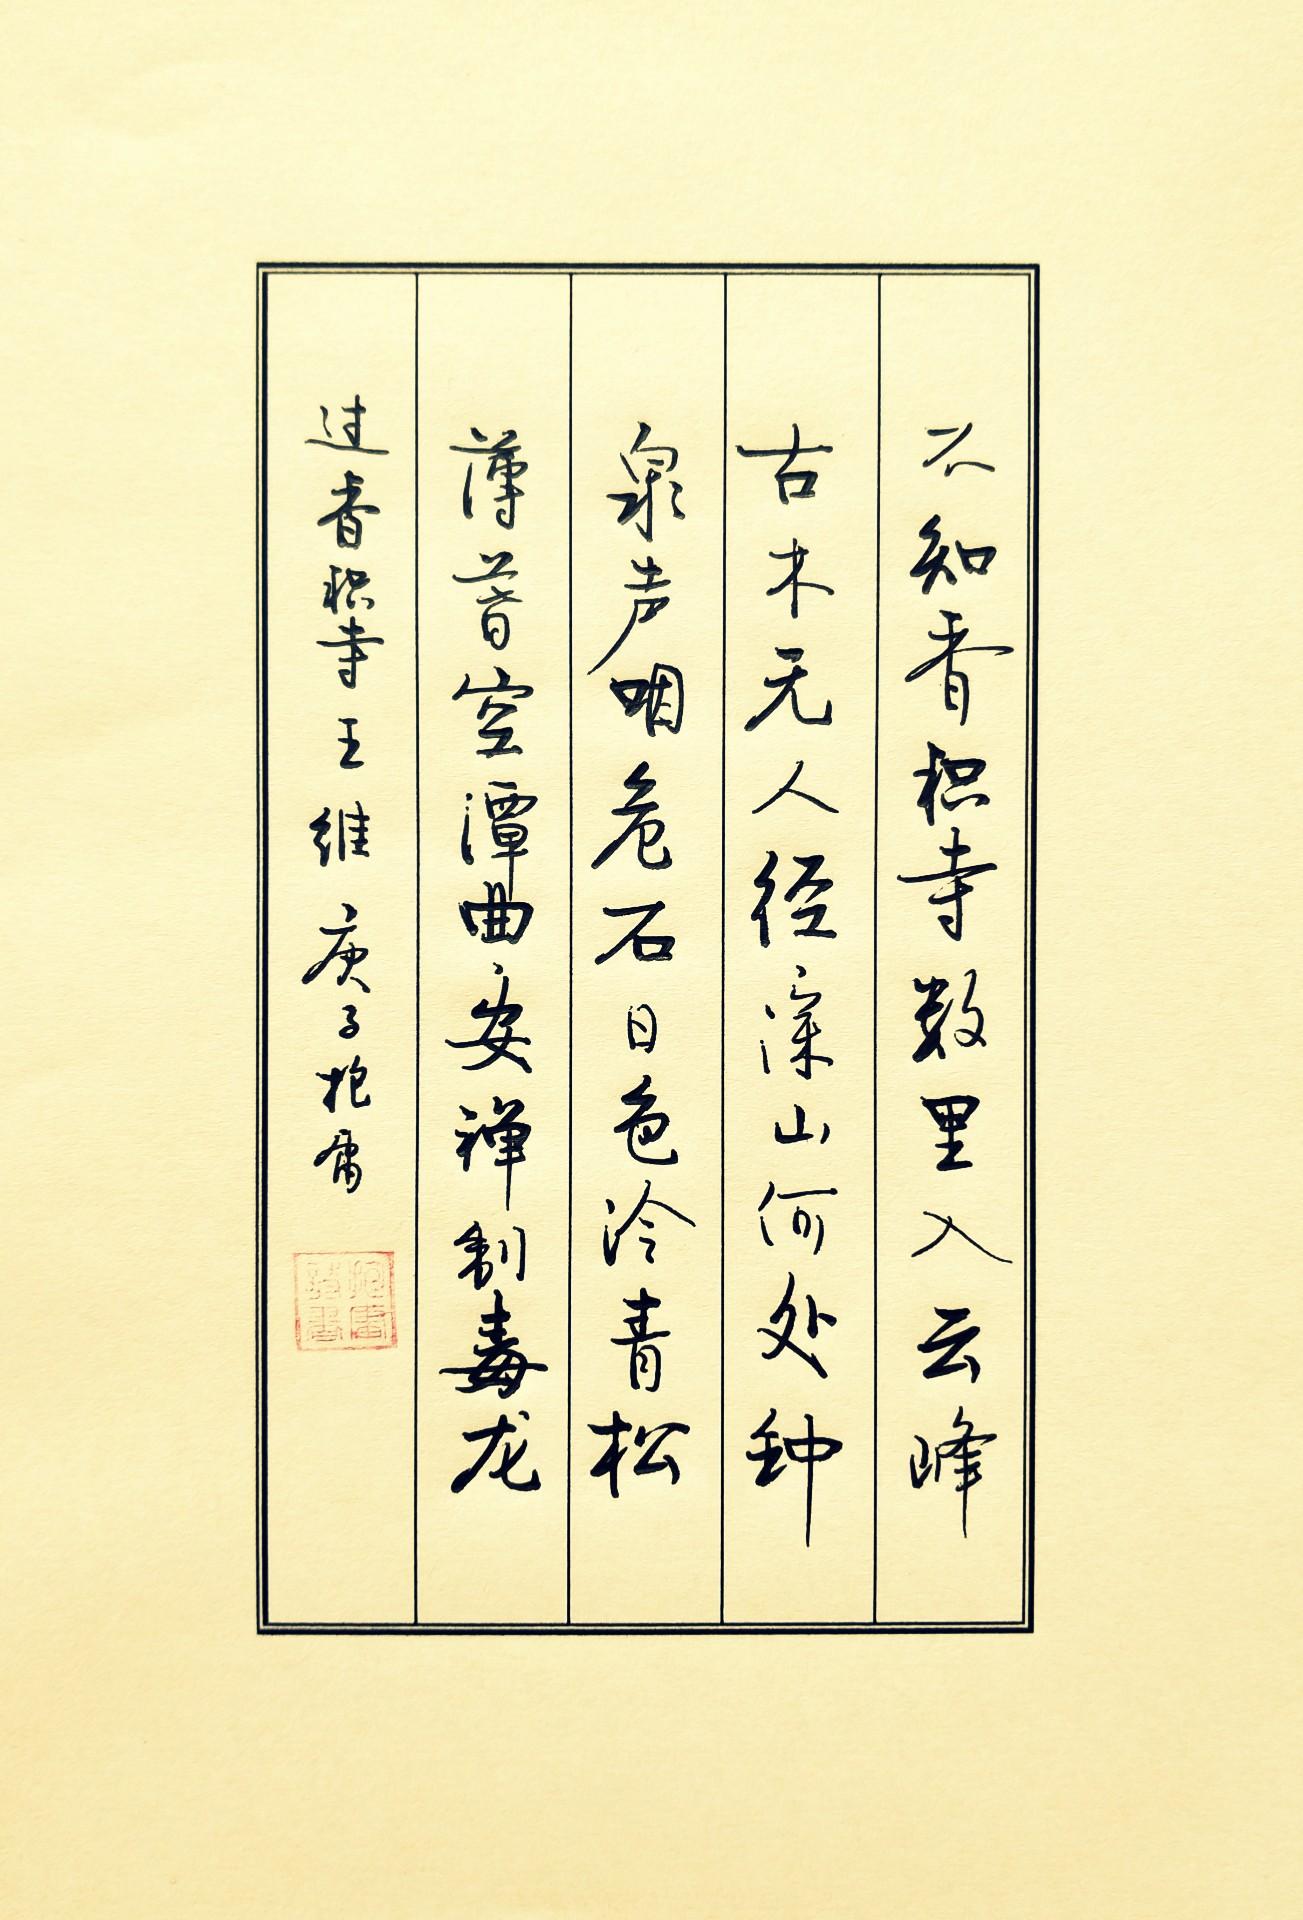 不知香积寺数里入云峰
古木无人径深山何处钟
泉声咽危石日色冷青松
薄暮空潭曲安禅制毒龙
过香积寺王维庚子抱庸